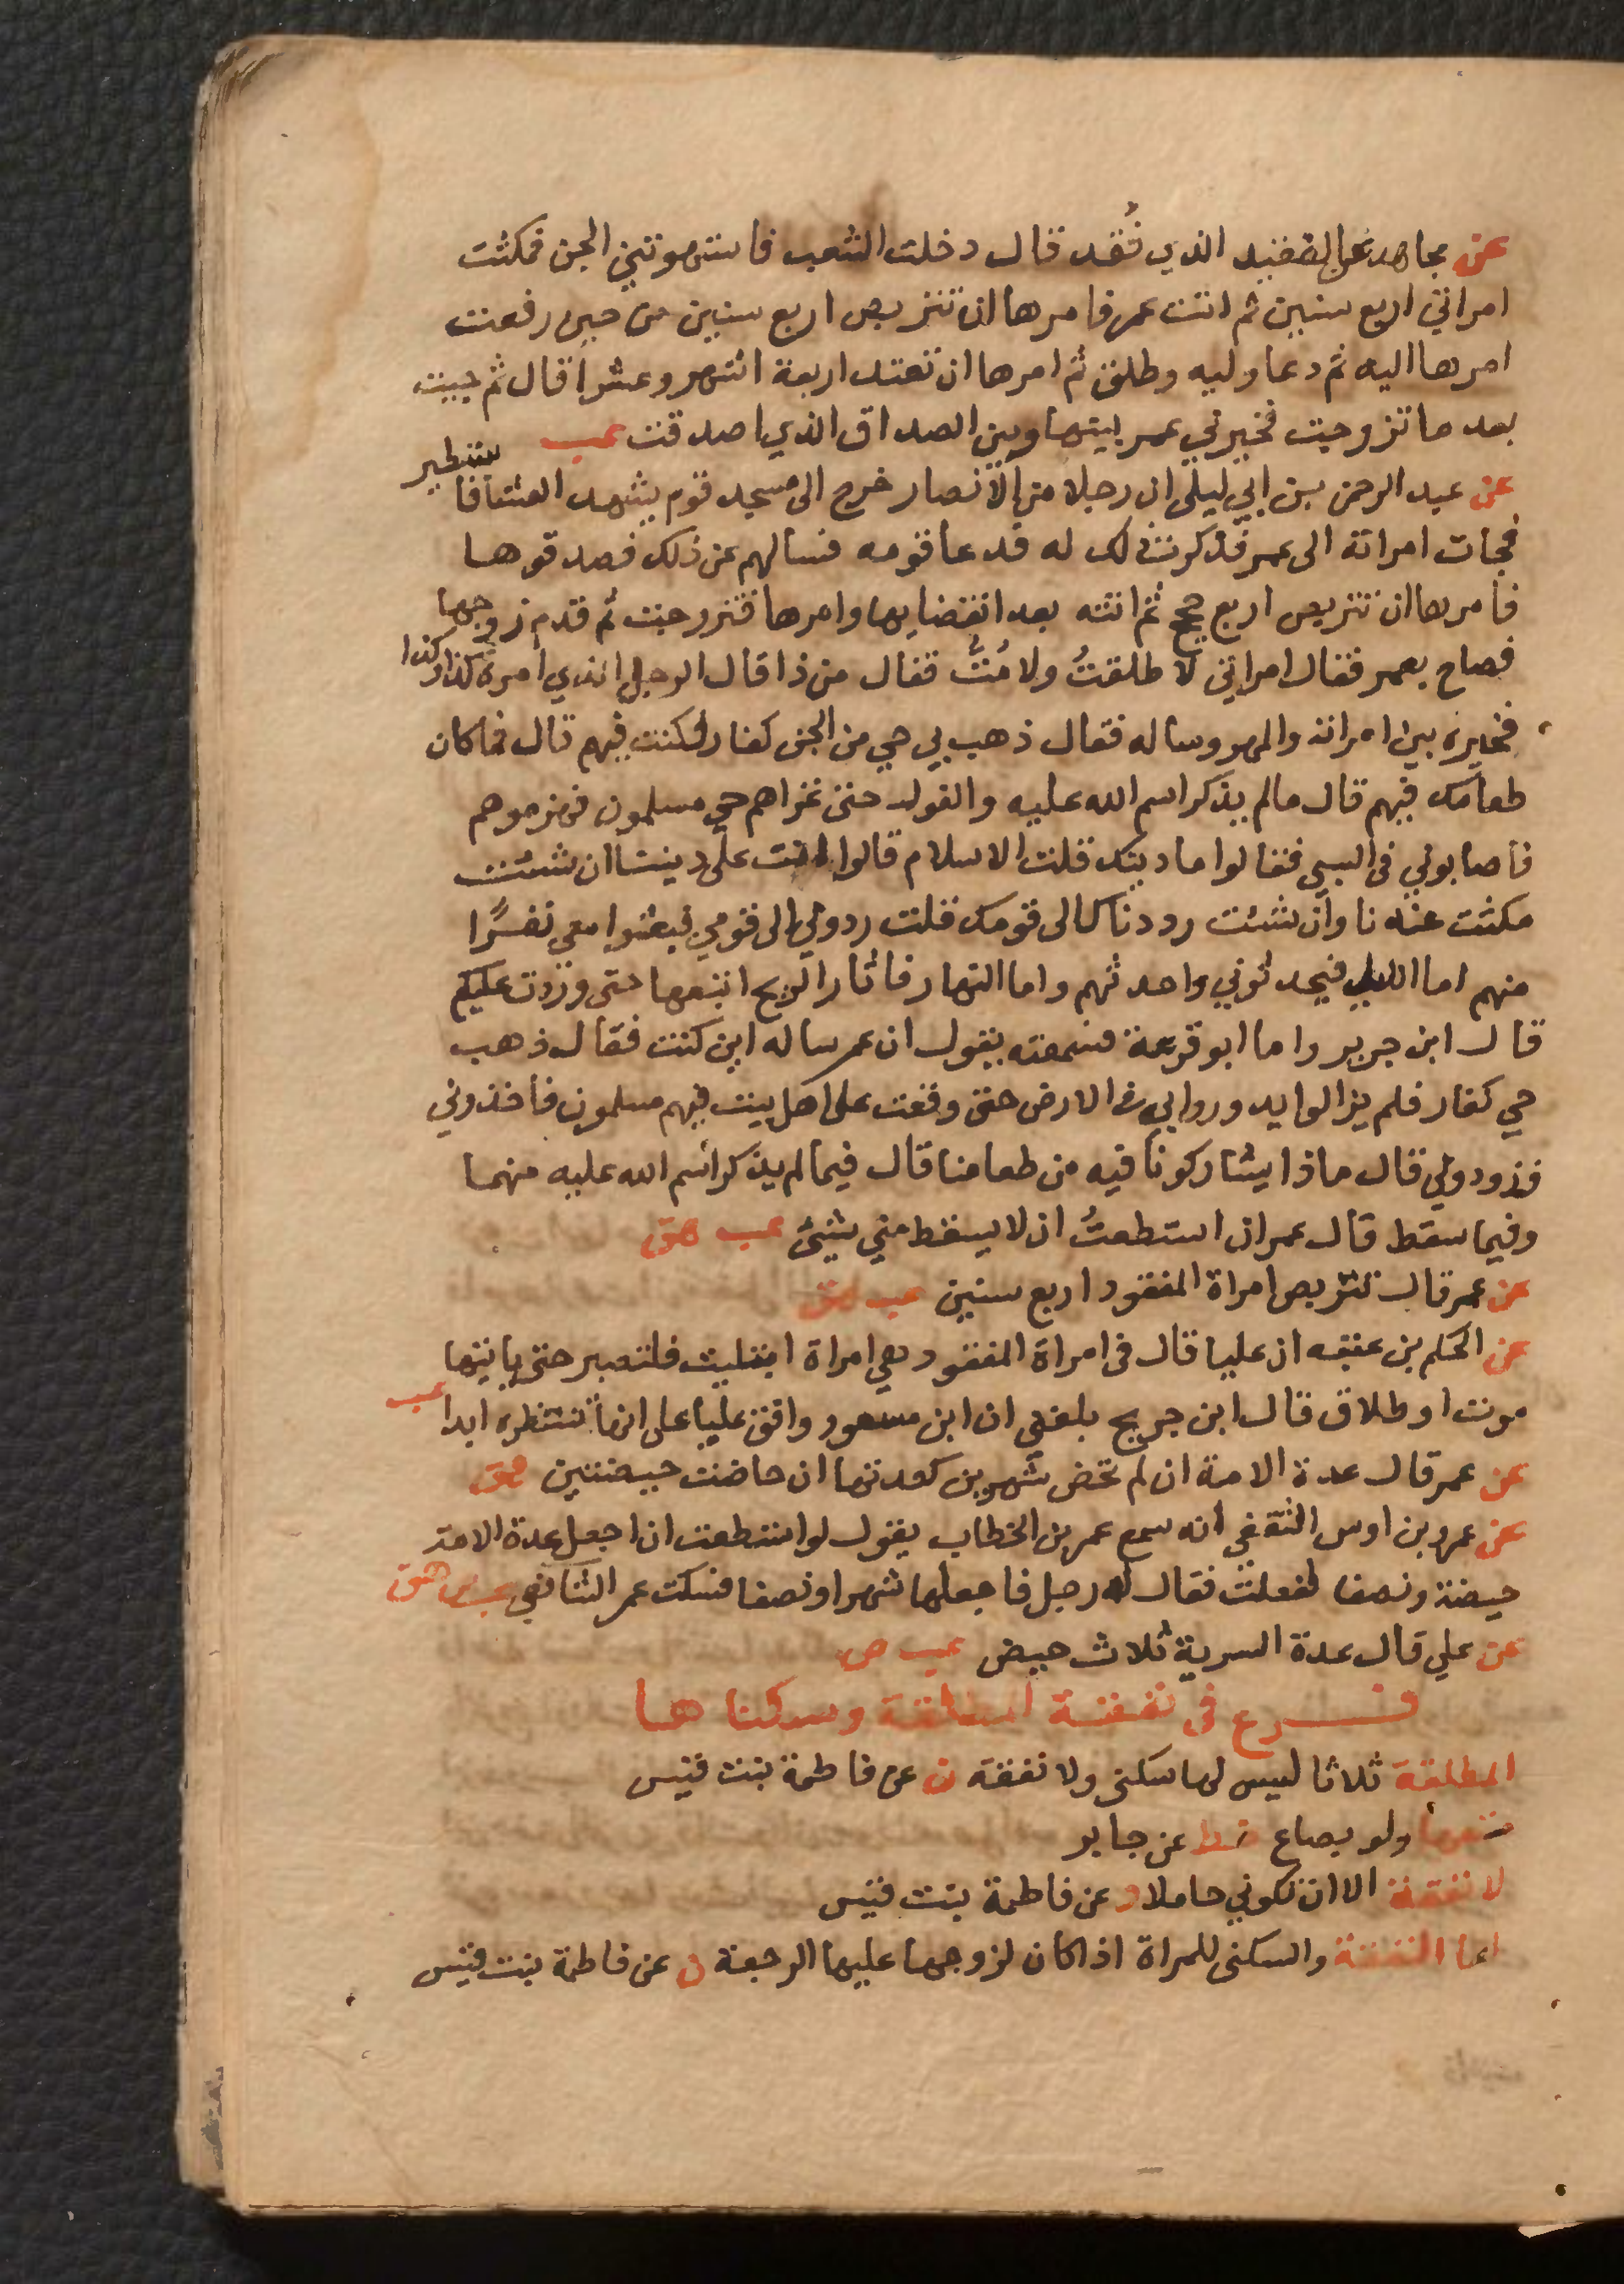 عن مجاهد عن الفقيد الذي فُقد قال دخلت الشعب فاستهوتني الجن فمكثت
امراتي اربع سنين ثم اتت عمر فامرها ان تتربص اربع سنين من حين رفعت
امرها اليه ثم دعا وليه وطلق ثم امرها ان تعتد اربعة اشهر وعشرا قال ثم جيت
بعد ما تزوجت فخيرني عمر بينها وبين الصداق الذي اصدقت عب
عن عبد الرحمن بن ابي ليلى ان رجلا من الانصار خرج الى مسجد قوم يشهد العشا فاستطير
فجات امراته الى عمر فذكرت ذلك له فدعا قومه فسالهم عن ذلك فصدقوها
فامرها ان تتربص اربع حجج ثم اتته بعد انقضايها وامرها فتزوجت ثم قدم زوجها
فصاح بعمر فقال امراتي لا طلقتُ ولا مُتُّ فقال من ذا قال الرجل الذي امره كذا وكذا
فخيره بين امراته والمهر وساله فقال ذهب بي حي من الجن كفار فكنت فيهم قال فما كان
طعامك فيهم قال مالم يذكر اسم الله عليه والفول حتى غزاهم حي مسلمون فهزموهم
فاصابوني في السبي فقالوا ما دينك قلت الاسلام قالوا انت على ديننا ان شئت
مكثت عندنا وان شئت رددناك الى قومك قلت ردوني الى قومي فبعثوا معي نفرًا
منهم اما الليل فيحدثوني واحدثهم واما النهار فاثار الريح اتبعها حتى وردت عليكم
قال ابن جرير واما ابو قزعة فسمعته يقول ان عمر ساله اين كنت فقال ذهب
حي كفار فلم يزالوا يدوروا بي في الارض حتى وقعت على اهل بيت فيهم مسلمون فأخذوني
فزودوني قال ماذا يشاركونا فيه من طعامنا قال فيما لم يذكر اسم الله عليه منهما
وفيما سقط قال عمر ان استطعتُ ان لا يسقط مني شيئ عب هق
عن عمر قال تتربص امراة المفقود اربع سنين عب هق
عن الحكم بن عتبه ان عليا قال في امراة المفقود هي امراة ابتليت فلتصبر حتى ياتيها
موت او طلاق قال ابن جريج بلغني ان ابن مسعود وافق عليا على انها تنتظره ابدا عب
عن عمر قال عدة الامة ان لم تحض شهرين كعدتها ان حاضت حيضتين هق
عن عمرو بن اوس الثقفي انه سمع عمر بن الخطاب يقول لو استطعت ان اجعل عدة الامة
حيضة ونصفا لفعلت فقال له رجل فاجعلها شهرا ونصفا فسكت عمر الشافعي عب ص هق
عن علي قال عدة السرية ثلاث حيض عب ص
فرع في نفقة المطلقة وسكناها
المطلقة ثلاثا ليس لها سكنى ولا نفقة ن عن فاطمة بنت قيس
متعها ولو بصاع خط عن جابر
لا نفقة الا ان تكوني حاملا د عن فاطمة بنت قيس
انما النفقة والسكنى للمراة اذا كان لزوجها عليها الرجعة ن عن فاطمة بنت قيس